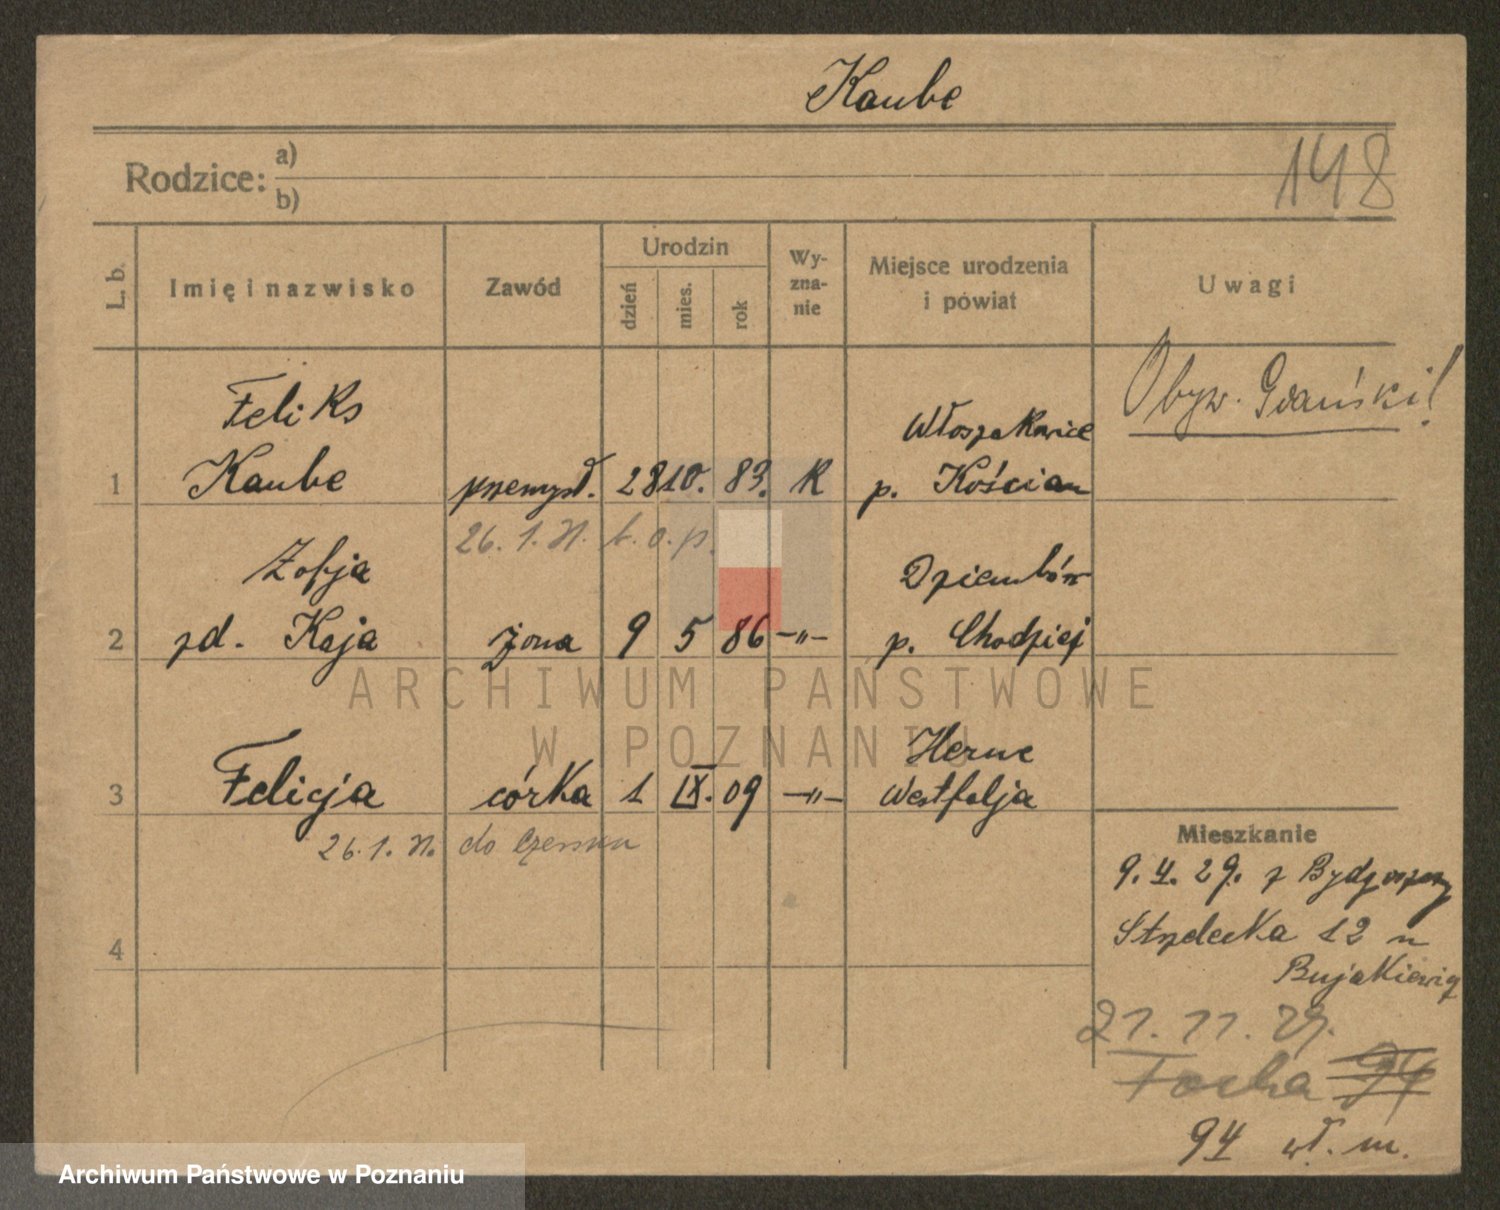 Kaube
148
Rodzice: a)
b)
L. b.
Imię i nazwisko
Zawód
Urodzin
dzień
mies.
rok
Wy-
zna-
nie
Miejsce urodzenia
i powiat
Uwagi
Obyw. Gdański!
Feliks
Włoszakowice
1 Kaube przemysł. 28 10. 83. K p. Kościan
26. 1. 31. b. o. p.
Zofja
Dziembów
2 zd. Kaja żona 9 5 86 -"- p. Chodzież
ARCHIWUM PAŃSTWOWE
W POZNANIU
Herne
3 Felicja córka 1 IX. 09 -"- Westfalja
26. 1. 31. do Czerska
Mieszkanie
9. 4. 29. z Bydgoszczy
Strzelecka 12 u
Bujakiewicz
4
21. 11. 29.
Focha 94
94 wł. m.
Archiwum Państwowe w Poznaniu